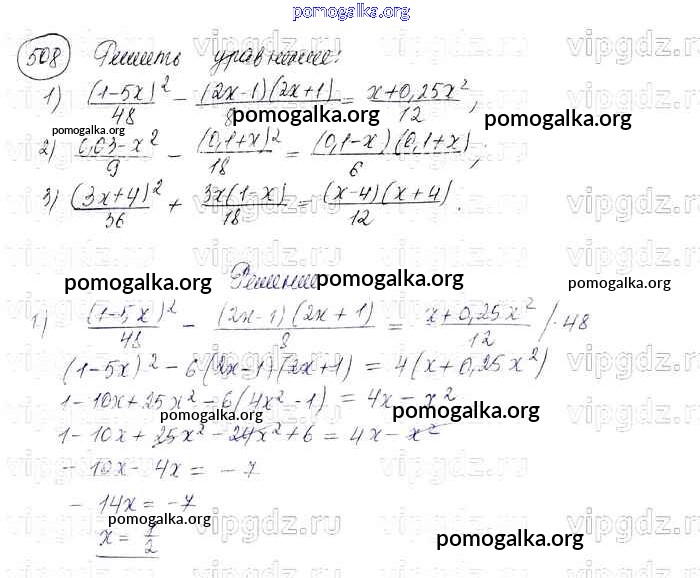 pomogalka.org
508 Решить уравнение:
1) (1-5x)²/48 - (2x-1)(2x+1)/8 = x+0,25x²/12;
pomogalka.org pomogalka.org pomogalka.org
2) 0,03-x²/9 - (0,1+x)²/18 = (0,1-x)(0,1+x)/6;
3) (3x+4)²/36 + 3x(1-x)/18 = (x-4)(x+4)/12.
Решение
pomogalka.org pomogalka.org pomogalka.org
1) (1-5x)²/48 - (2x-1)(2x+1)/8 = x+0,25x²/12 /·48
(1-5x)²-6(2x-1)(2x+1) = 4(x+0,25x²)
1-10x+25x²-6(4x²-1) = 4x-x²
pomogalka.org pomogalka.org
1-10x+25x²-24x²+6 = 4x-x²
-10x-4x = -7
-14x = -7
pomogalka.org
x = 1/2
pomogalka.org
vipgdz.ru